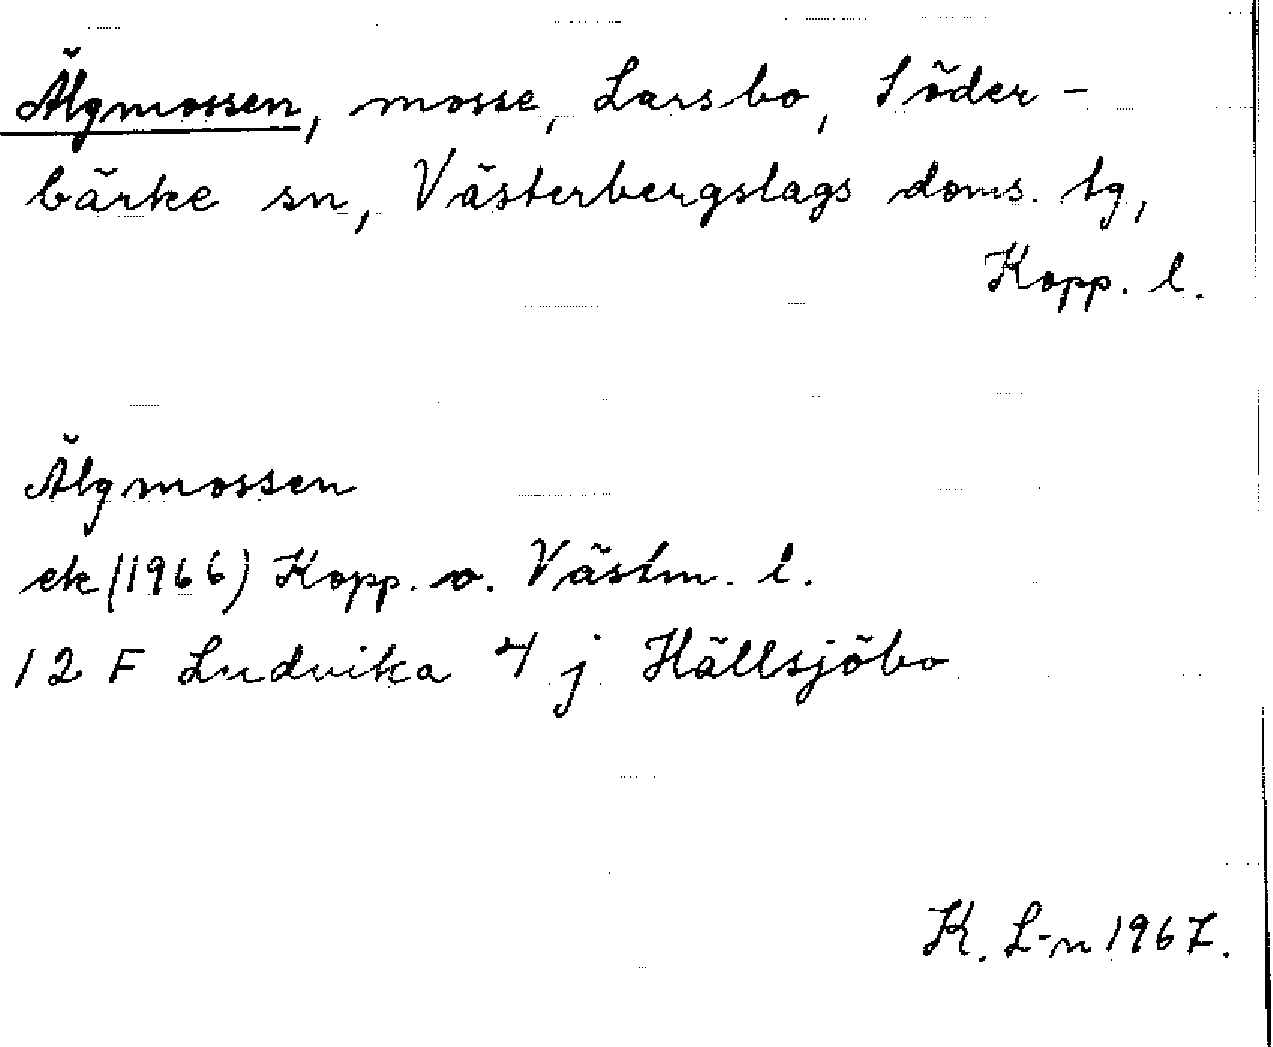 Älgmossen, mosse, Larsbo, Söder-
bärke sn, Västerbergslags doms. tg,
Kopp. l.
Älgmossen
ek (1966) Kopp. o. Västm. l.
12 F Ludvika 4 j Hällsjöbo
K. L-n 1967.